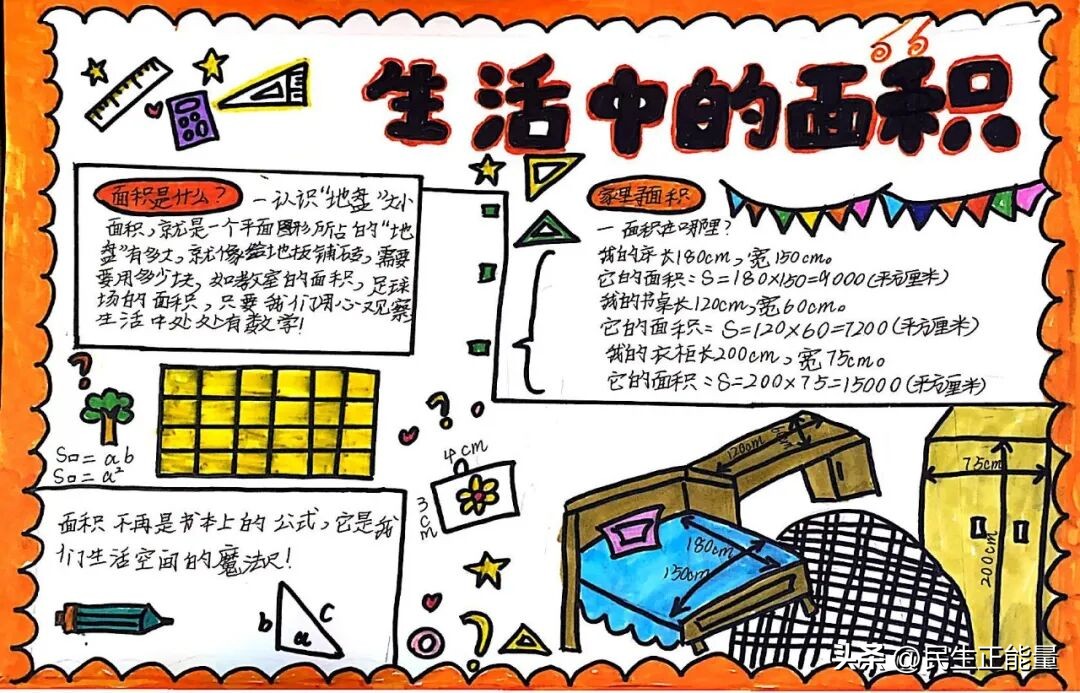 生活中的面积
面积是什么？
—认识“地盘”大小
面积，就是一个平面图形所占的“地
盘”有多大，就像给地板铺砖，需要
要用多少块，如教室的面积，足球
场的面积，只要我们用心观察
生活中处处有数学！
家里寻面积
一面积在哪里？
我的床长180cm，宽150cm。
它的面积：S=180×150=9000（平方厘米）
我的书桌长120cm，宽60cm。
它的面积：S=120×60=7200（平方厘米）
我的衣柜长200cm，宽75cm。
它的面积：S=200×75=15000（平方厘米）
S□=ab
S□=a²
4cm
3cm
面积不再是书本上的公式，它是我
们生活空间的魔法尺！
b
c
a
120cm
180cm
150cm
75cm
200cm
头条 @民生正能量